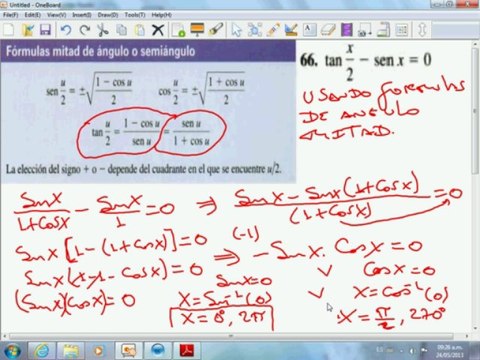 Untitled - OneBoard
Fórmulas mitad de ángulo o semiángulo
sen u/2 = ±√((1 − cos u)/2)   cos u/2 = ±√((1 + cos u)/2)
tan u/2 = (1 − cos u)/(sen u) = (sen u)/(1 + cos u)
La elección del signo + o − depende del cuadrante en el que se encuentre u/2.
66. tan x/2 − sen x = 0
USANDO FORMULAS
DE ANGULO
MITAD.
SenX/(1+CosX) − SenX/1 = 0 ⇒ (SenX − SenX(1+CosX))/(1+CosX) = 0
SenX[1−(1+CosX)] = 0 ⇒ (-1) − SenX. CosX = 0
SenX(1−1−CosX) = 0   SenX=0   ∨   CosX=0
(SenX)(CosX) = 0   X=Sen⁻¹(0)   ∨   X=Cos⁻¹(0)
X=0°, 2π   X=π/2, 270°
ES
09:28 a.m.
24/05/2013